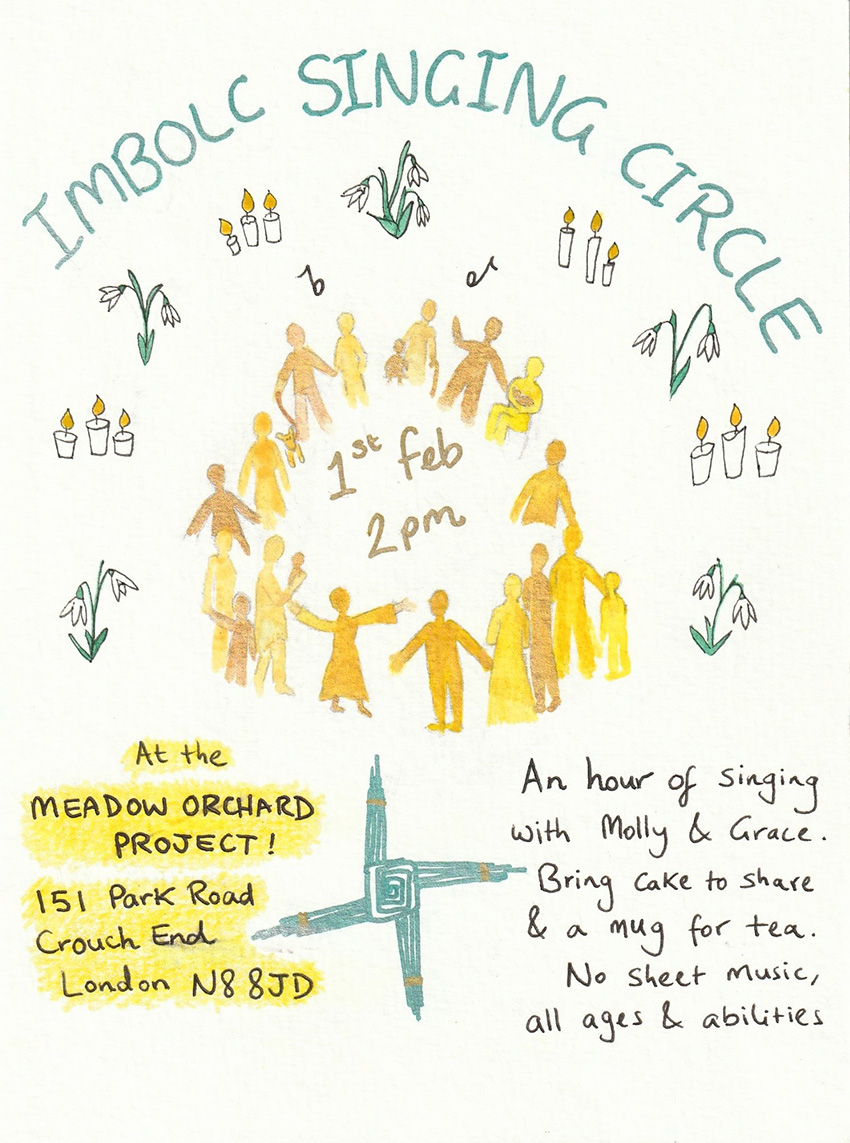 IMBOLC SINGING CIRCLE
1st feb
2pm
At the
MEADOW ORCHARD
PROJECT!
151 Park Road
Crouch End
London N8 8JD
An hour of singing
with Molly & Grace.
Bring cake to share
& a mug for tea.
No sheet music,
all ages & abilities